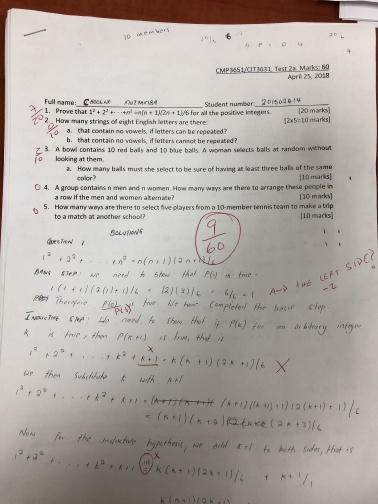 10 members
CMP3651/CIT3631, Test 2a. Marks: 60
April 25, 2018
Full name: Student number: 201502414
1. Prove that 1² + 2² + ··· + n² = n(n + 1)(2n + 1)/6 for all the positive integers. [20 marks]
2. How many strings of eight English letters are there: [2x5=10 marks]
a. that contain no vowels, if letters can be repeated?
b. that contain no vowels, if letters cannot be repeated?
3. A bowl contains 10 red balls and 10 blue balls. A woman selects balls at random without
looking at them.
a. How many balls must she select to be sure of having at least three balls of the same
color? [10 marks]
4. A group contains n men and n women. How many ways are there to arrange these people in
a row if the men and women alternate? [10 marks]
5. How many ways are there to select five players from a 10-member tennis team to make a trip
to a match at another school? [10 marks]
9/60
SOLUTIONS
QUESTION 1
1² + 2² + ... + n² = n(n+1)(2n+1)/6
BASIS STEP: We need to show that P(1) is true.
1(1+1)(2(1)+1)/6 = (2)(3)/6 = 6/6 = 1 AND THE LEFT SIDE?
-2
Therefore P(1) is true. We have completed the basis step
INDUCTIVE STEP: We need to show that if P(k) for an arbitrary integer
k is true, then P(k+1) is true, that is
1² + 2² + ... + k² + k+1 = k(k+1)(2k+1)/6 X
We then substitute k with k+1
1² + 2² + ... + k² + k+1 = (k+1)((k+1)+1)(2(k+1)+1)/6
= (k+1)(k+2)(2k+3)/6
Now for the inductive hypothesis, we add k+1 to both sides, that is
1² + 2² + ... + k² + k+1 = k(k+1)(2k+1)/6 + k+1/1